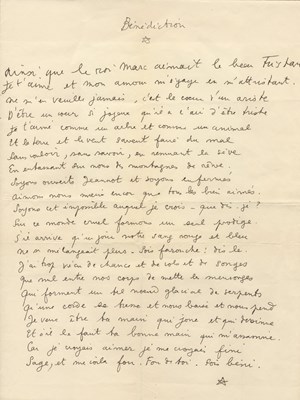 Bénédiction
Ainsi que le roi Marc aimait le beau Tristan
Je t'aime et mon amour m'égaye en m'attristant.
Ne m'en veuille jamais, c'est le cœur d'un artiste
D'être un cœur si joyeux qu'il a l'air d'être triste
Je t'aime comme un arbre et comme un animal
Et la terre et le vent savent faire du mal
Sans savoir, sans savoir, en remuant la sève
En entassant sur nous de montagnes de rêve.
Soyons ouverts Jeannot et soyons enfermés
Aimons nous mieux encor que tous les bien aimés.
Soyons cet impossible auquel je crois - que dis-je ?
Sur ce monde cruel formons un seul prodige
S'il arrive qu'un jour notre sang rouge et bleu
Ne se mélangeât plus - Sois farouche : dis le
J'ai trop vécu de chance et de sols et de songes
Que nul entre nos corps ne mette les mensonges
Qui forment un tel nœud glacial de serpents
Qu'une corde se trame et nous baise et nous pend
Je veux être ta main qui joue et qui dessine
Et s'il le faut ta bonne main qui m'assassine.
Car je croyais aimer je me croyais fini
Sage, et me voilà fou. Fou de toi. Sois béni.